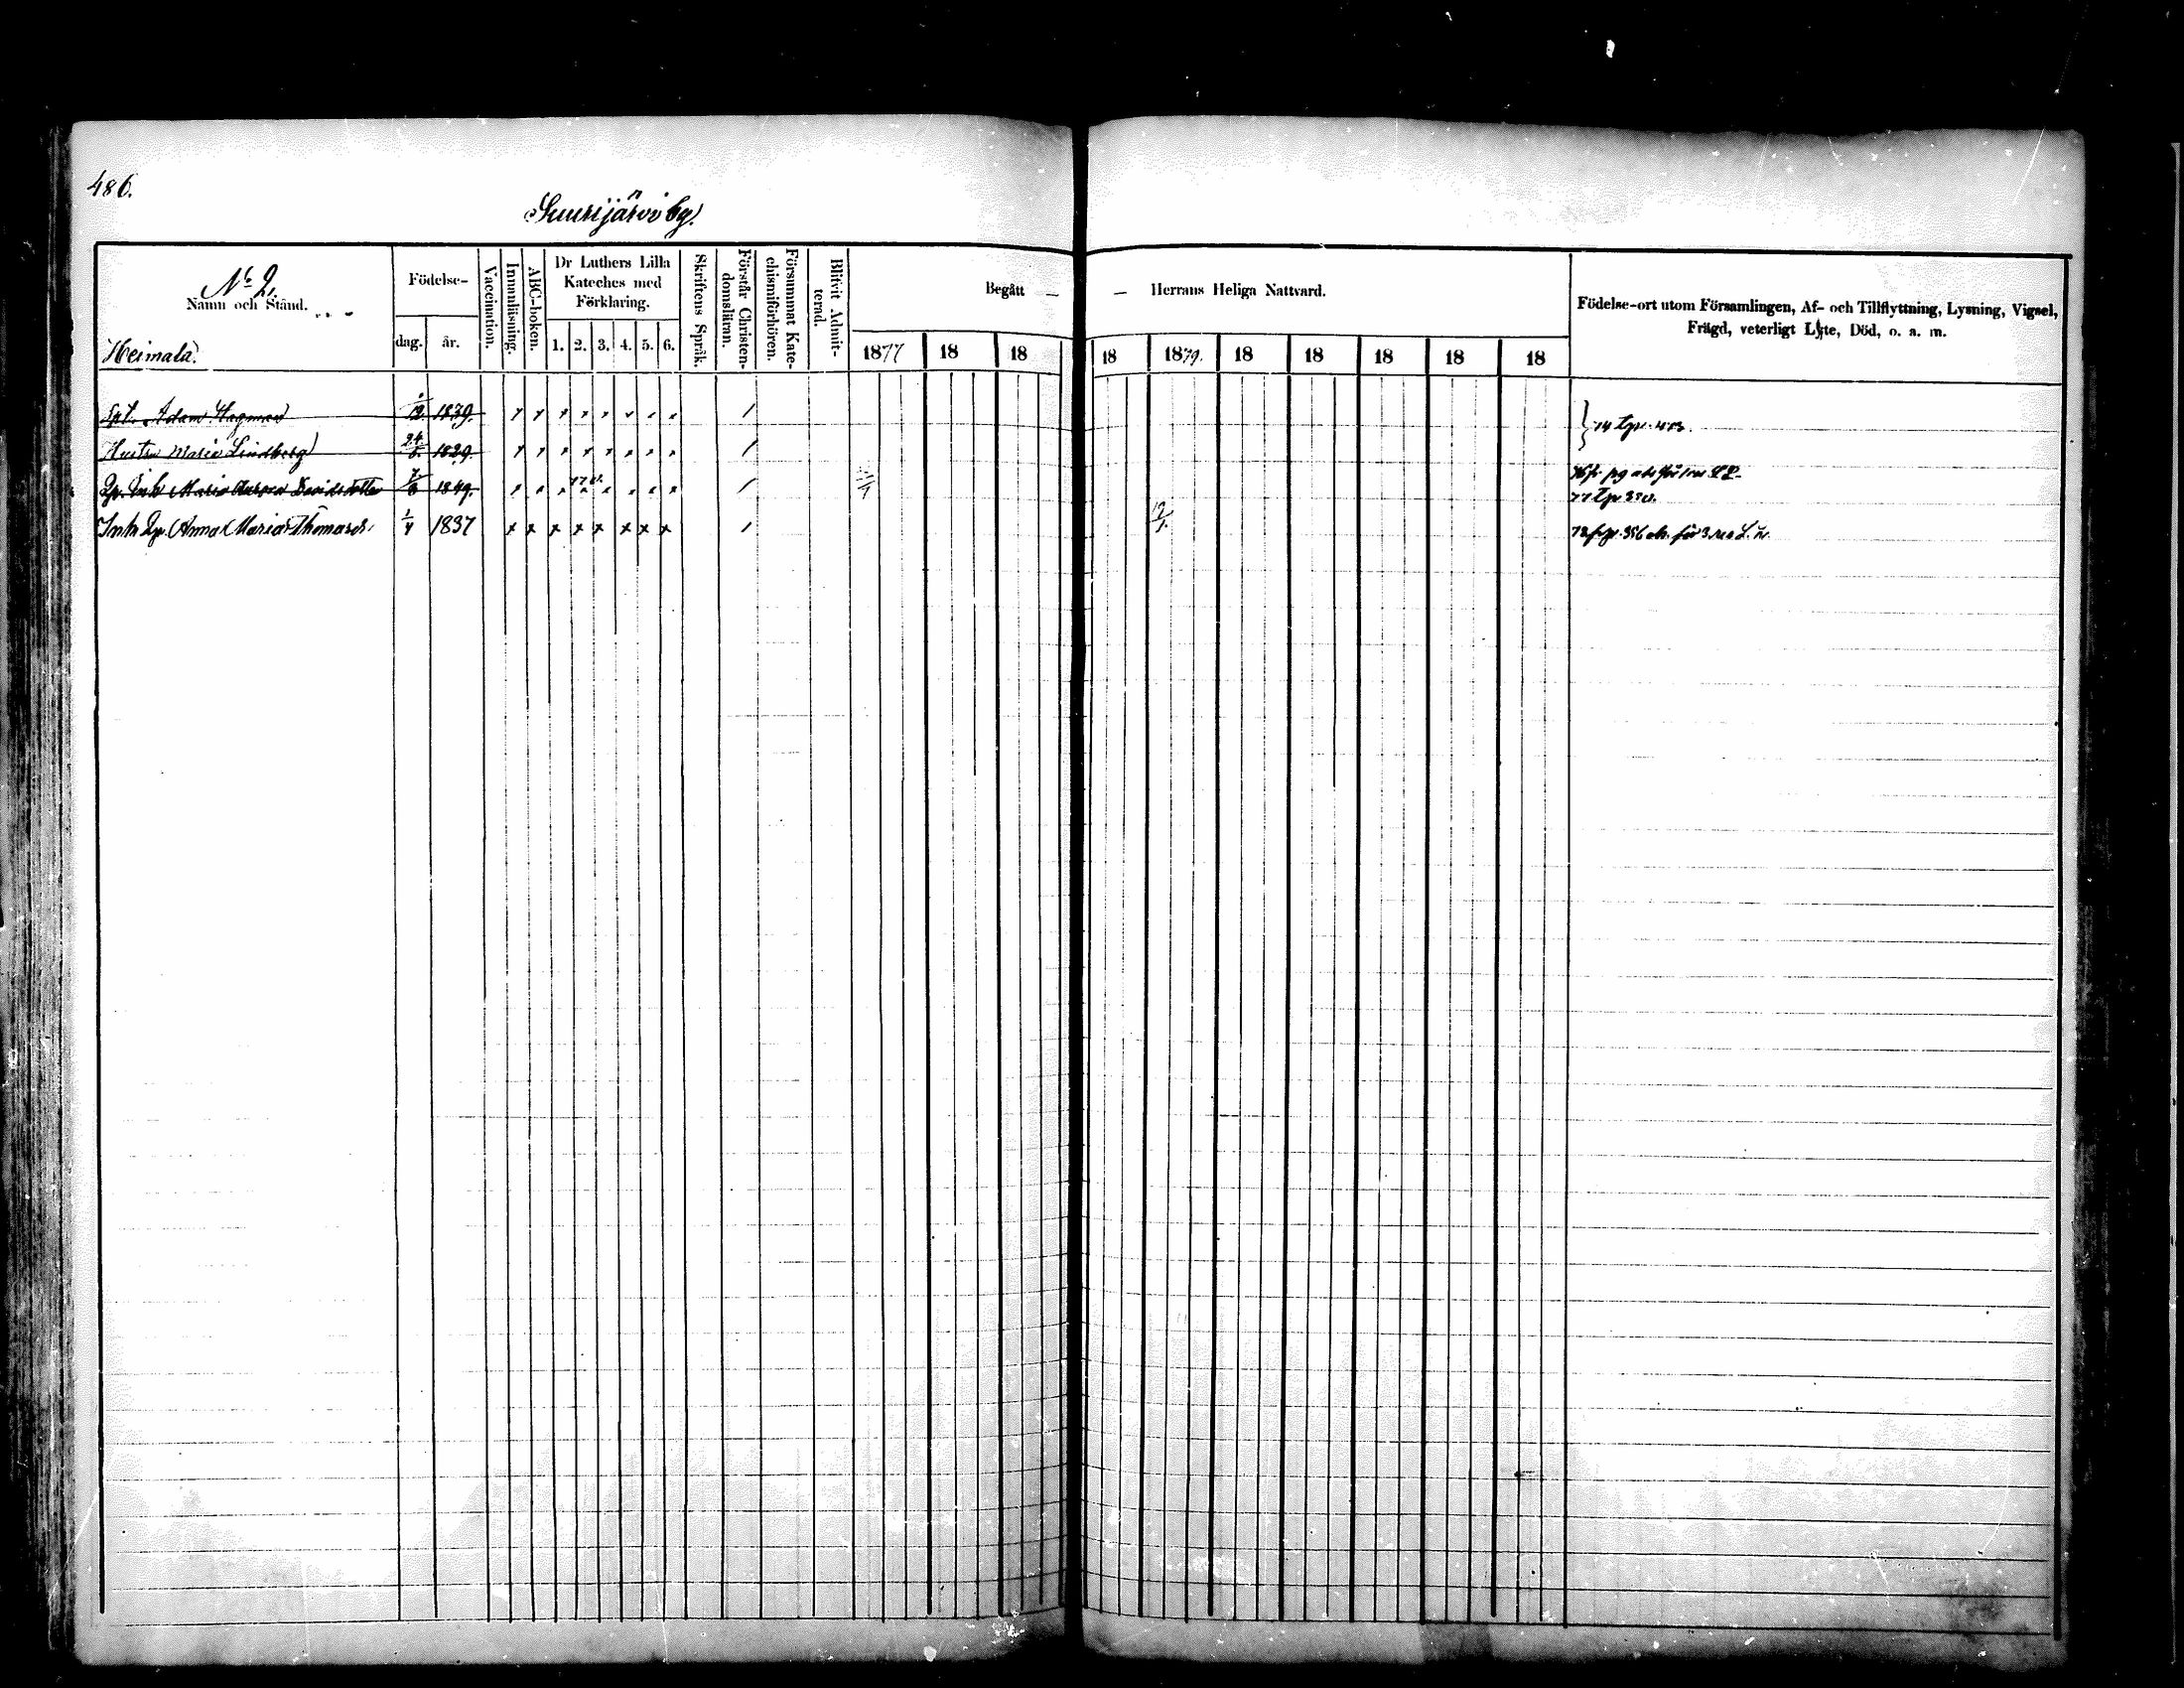 486.
Suurijärvi by.
No 2.
Namn och Stånd.
Heimala.
Födelse-
dag. år.
Vaccination.
Innanläsning.
ABC-boken.
Dr Luthers Lilla
Kateches med
Förklaring.
1. 2. 3. 4. 5. 6.
Skriftens Språk.
Förstår Christen-
domsläran.
Försummat Kate-
chismiförhören.
Blifvit Admit-
terad.
Begått — — Herrans Heliga Nattvard.
1877 18 18 18 1879. 18 18 18 18 18
Födelse-ort utom Församlingen, Af- och Tillflyttning, Lysning, Vigsel,
Frägd, veterligt Lyte, Död, o. a. m.
Adam Hagman 12. 1839. x x x x x x x x /
Hustru Maria Lindberg 24 1829. x x x x x x x x /
Inh Maria Aurora Davidsdotter 1849. x x x x x x x x /
Anna Maria Thomasdr 1/4 1837 x x x x x x x x / 12/1.